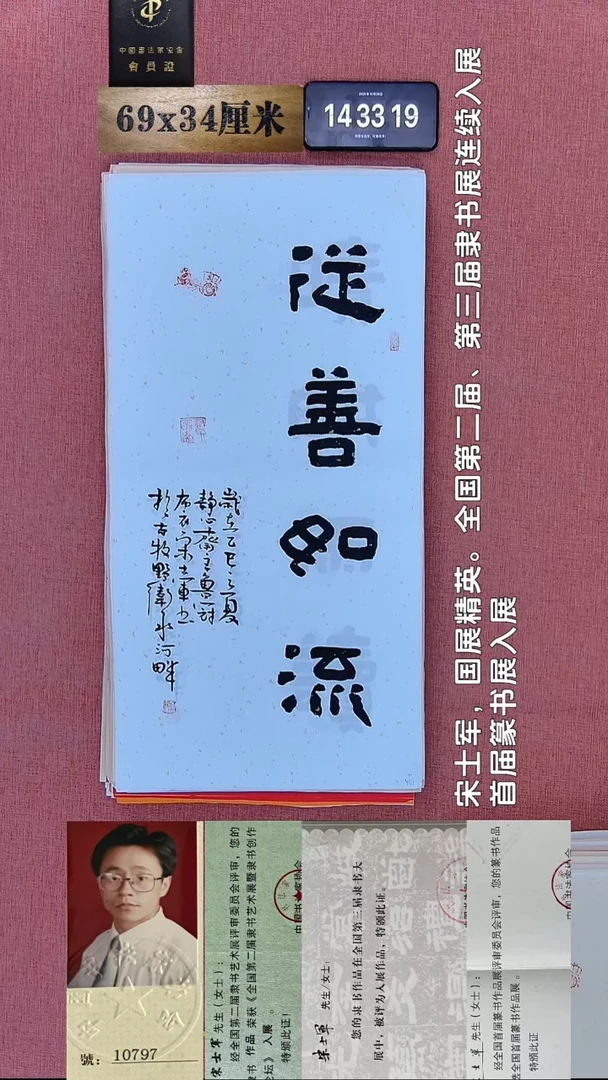 中國書法家協會
會員證
69x34厘米
14 33 19
從善如流
歲在乙巳之夏
静心齋主曹州
布衣宋士軍書
於古牧野衛水河畔
宋士军，国展精英。全国第二届、第三届隶书展连续入展
首届篆书展入展
号：10797
宋士军 先生（女士）：
经全国第二届隶书艺术展评审委员会评审，您的
隶书 作品 荣获《全国第二届隶书艺术展暨隶书创作
论坛》入展 。
特颁此证！
宋士軍 先生/女士：
您的隶书作品在全国第三届隶书大
展中，被评为入展作品，特颁此证。
士军 先生（女士）：
经全国首届篆书作品展评审委员会评审，您的篆书作品
选全国首届篆书作品展。
特颁此证